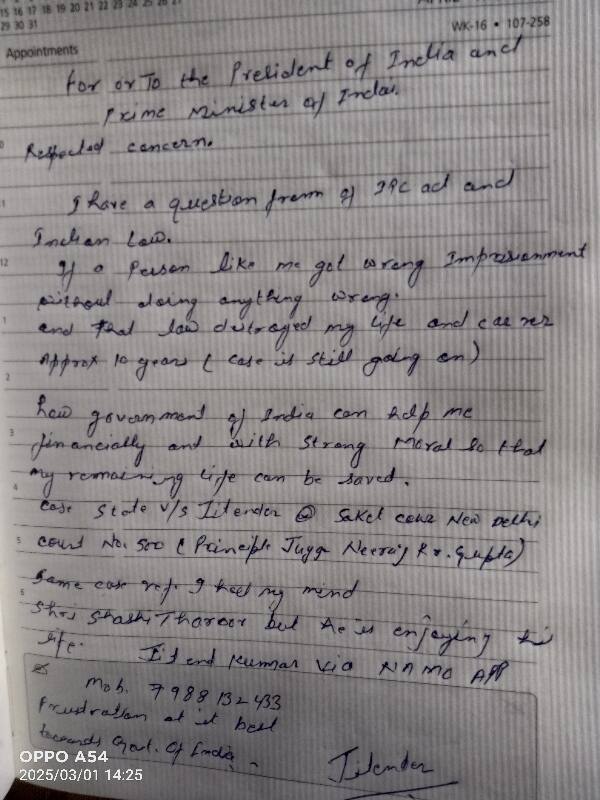 15 16 17 18 19 20 21 22 23 24 25 26 27
29 30 31
WK-16 • 107-258
Appointments
For or To the President of India and
Prime Minister of Indai.
Respected concern.
I have a question from of IPC act and
Indian Law.
If a Person like me got wrong Imprisionment
without doing anything wrong.
and that law dstroyed my life and career
Approx 10 years ( case is still going on )
how government of India can help me
financially and with strong Moral so that
my remaining life can be saved.
case State v/s Jitender @ Saket New Delhi
court No. 500 ( Principle Jugge Neeraj Kr. Gupta)
Same case I had my mind
Shri Shashi Tharoor but he is enjoying his
life. Jitend Kumar Via NAMO APP
Mob. 7988132433
Frustration at it best
towards Govt. Of India.
Jitender
OPPO A54
2025/03/01 14:25